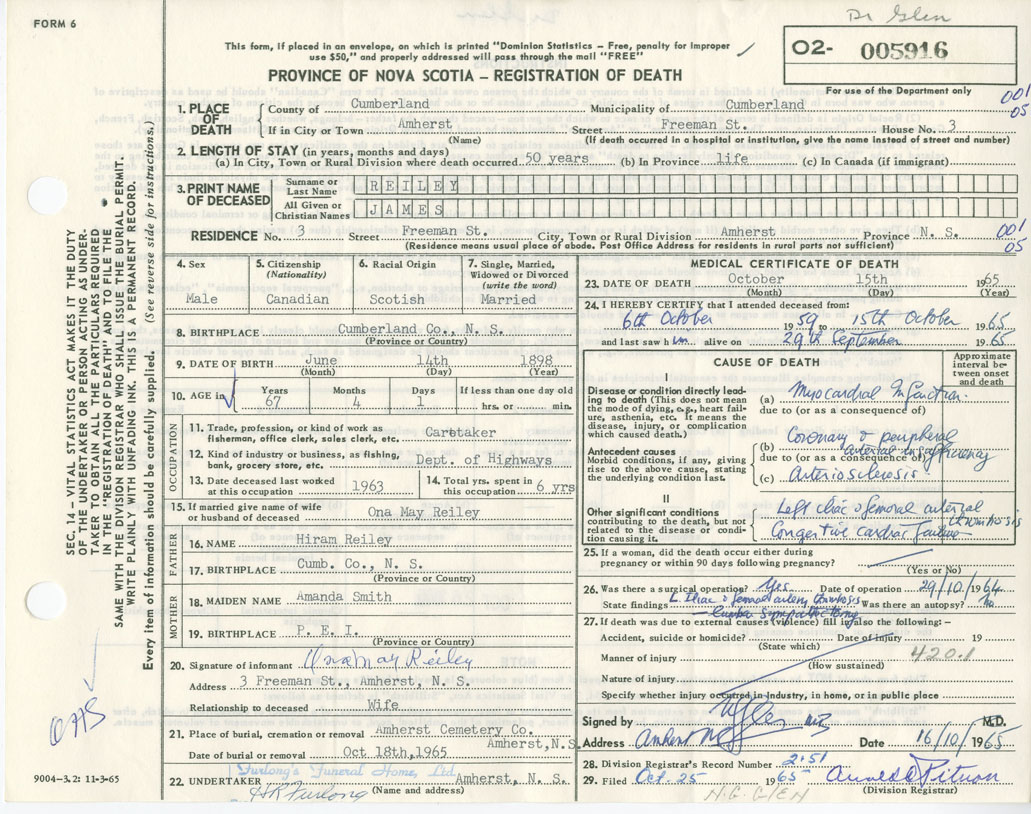 Dr Glen
FORM 6
O2- 005916
This form, if placed in an envelope, on which is printed "Dominion Statistics – Free, penalty for improper
use $50," and properly addressed will pass through the mail "FREE"
PROVINCE OF NOVA SCOTIA – REGISTRATION OF DEATH
For use of the Department only
001
05
1. PLACE OF DEATH
County of Cumberland Municipality of Cumberland
If in City or Town Amherst (Name) Street Freeman St. House No. 3
(If death occurred in a hospital or institution, give the name instead of street and number)
2. LENGTH OF STAY (in years, months and days)
(a) In City, Town or Rural Division where death occurred 50 years (b) In Province life (c) In Canada (if immigrant)
3. PRINT NAME OF DECEASED
Surname or Last Name REILEY
All Given or Christian Names JAMES
RESIDENCE No. 3 Street Freeman St. City, Town or Rural Division Amherst Province N. S.
001
05
(Residence means usual place of abode. Post Office Address for residents in rural parts not sufficient)
4. Sex
Male
5. Citizenship (Nationality)
Canadian
6. Racial Origin
Scotish
7. Single, Married, Widowed or Divorced (write the word)
Married
8. BIRTHPLACE Cumberland Co., N. S.
(Province or Country)
9. DATE OF BIRTH June 14th 1898
(Month) (Day) (Year)
10. AGE in Years 67 Months 4 Days 1 If less than one day old hrs. or min.
OCCUPATION
11. Trade, profession, or kind of work as
fisherman, office clerk, sales clerk, etc. Caretaker
12. Kind of industry or business, as fishing,
bank, grocery store, etc. Dept. of Highways
13. Date deceased last worked
at this occupation 1963
14. Total yrs. spent in
this occupation 6 yrs
15. If married give name of wife
or husband of deceased Ona May Reiley
FATHER
16. NAME Hiram Reiley
17. BIRTHPLACE Cumb. Co., N. S.
(Province or Country)
MOTHER
18. MAIDEN NAME Amanda Smith
19. BIRTHPLACE P. E. I.
(Province or Country)
20. Signature of informant Ona May Reiley
Address 3 Freeman St., Amherst, N. S.
Relationship to deceased Wife
21. Place of burial, cremation or removal Amherst Cemetery Co.
Amherst, N.S.
Date of burial or removal Oct 18th, 1965
22. UNDERTAKER Furlong's Funeral Home, Ltd Amherst, N. S.
HR Furlong (Name and address)
MEDICAL CERTIFICATE OF DEATH
23. DATE OF DEATH October 15th 1965
(Month) (Day) (Year)
24. I HEREBY CERTIFY that I attended deceased from:
6th October 1959 to 15th October 1965
and last saw him alive on 29th September 1965
CAUSE OF DEATH
Approximate interval between onset and death
I
Disease or condition directly leading to death (This does not mean the mode of dying, e.g., heart failure, asthenia, etc. It means the disease, injury, or complication which caused death.)
(a) Myocardial Infarction
due to (or as a consequence of)
Antecedent causes
Morbid conditions, if any, giving rise to the above cause, stating the underlying condition last.
(b) Coronary & peripheral
arterial insufficiency
due to (or as a consequence of)
(c) Arteriosclerosis
II
Other significant conditions
contributing to the death, but not related to the disease or condition causing it.
Left iliac & femoral arterial
thrombosis
Congestive Cardiac Failure
25. If a woman, did the death occur either during
pregnancy or within 90 days following pregnancy?
(Yes or No)
26. Was there a surgical operation? Yes. Date of operation 29/10/1964
State findings L. Iliac & femoral artery thrombosis Was there an autopsy? No
– Lumbar Sympathectomy
27. If death was due to external causes (violence) fill in also the following: –
Accident, suicide or homicide? Date of injury 19
(State which)
Manner of injury 420.1
(How sustained)
Nature of injury
Specify whether injury occurred in industry, in home, or in public place
Signed by M.D.
Address Amherst NS Date 16/10/1965
28. Division Registrar's Record Number 2-51
29. Filed Oct. 25 1965
(Division Registrar)
N.G. GLEN
SEC. 14 – VITAL STATISTICS ACT MAKES IT THE DUTY
OF THE UNDERTAKER OR PERSON ACTING AS UNDER-
TAKER TO OBTAIN ALL THE PARTICULARS REQUIRED
IN THE "REGISTRATION OF DEATH" AND TO FILE THE
SAME WITH THE DIVISION REGISTRAR WHO SHALL ISSUE THE BURIAL PERMIT.
WRITE PLAINLY WITH UNFADING INK. THIS IS A PERMANENT RECORD.
Every item of information should be carefully supplied. (See reverse side for instructions.)
9004–3.2: 11-3-65